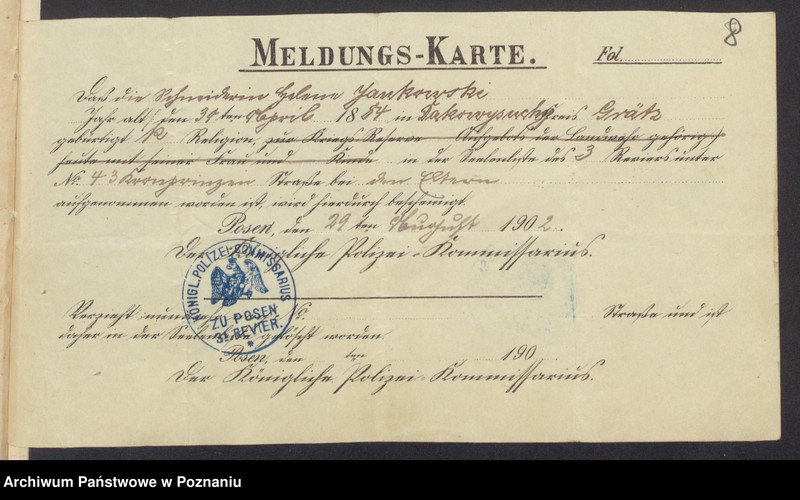 8
MELDUNGS-KARTE.
Fol.
Daß die Schneiderin Helene Jankowski
Jahr alt, den 30 ten April 1884 in Kreis Grätz
gebürtigt k. Religion, zur Kriegs-Reserve Aufgebots der Landwehr gehörig,
heute mit seiner Frau und Kinde in der Seelenliste des 3 Reviers unter
No. 43 Kronprinzen Straße bei den Eltern
aufgenommen worden ist, wird hierdurch bescheinigt.
Posen, den 29 ten August 1902.
Der Königliche Polizei-Kommissarius.
KÖNIGL. POLIZEI-COMMISSARIUS
ZU POSEN
3. REVIER.
Verzieht nunmehr No. Straße und ist
daher in der Seelenliste gelöscht worden.
Posen, den ten 190
Der Königliche Polizei-Kommissarius.
Archiwum Państwowe w Poznaniu